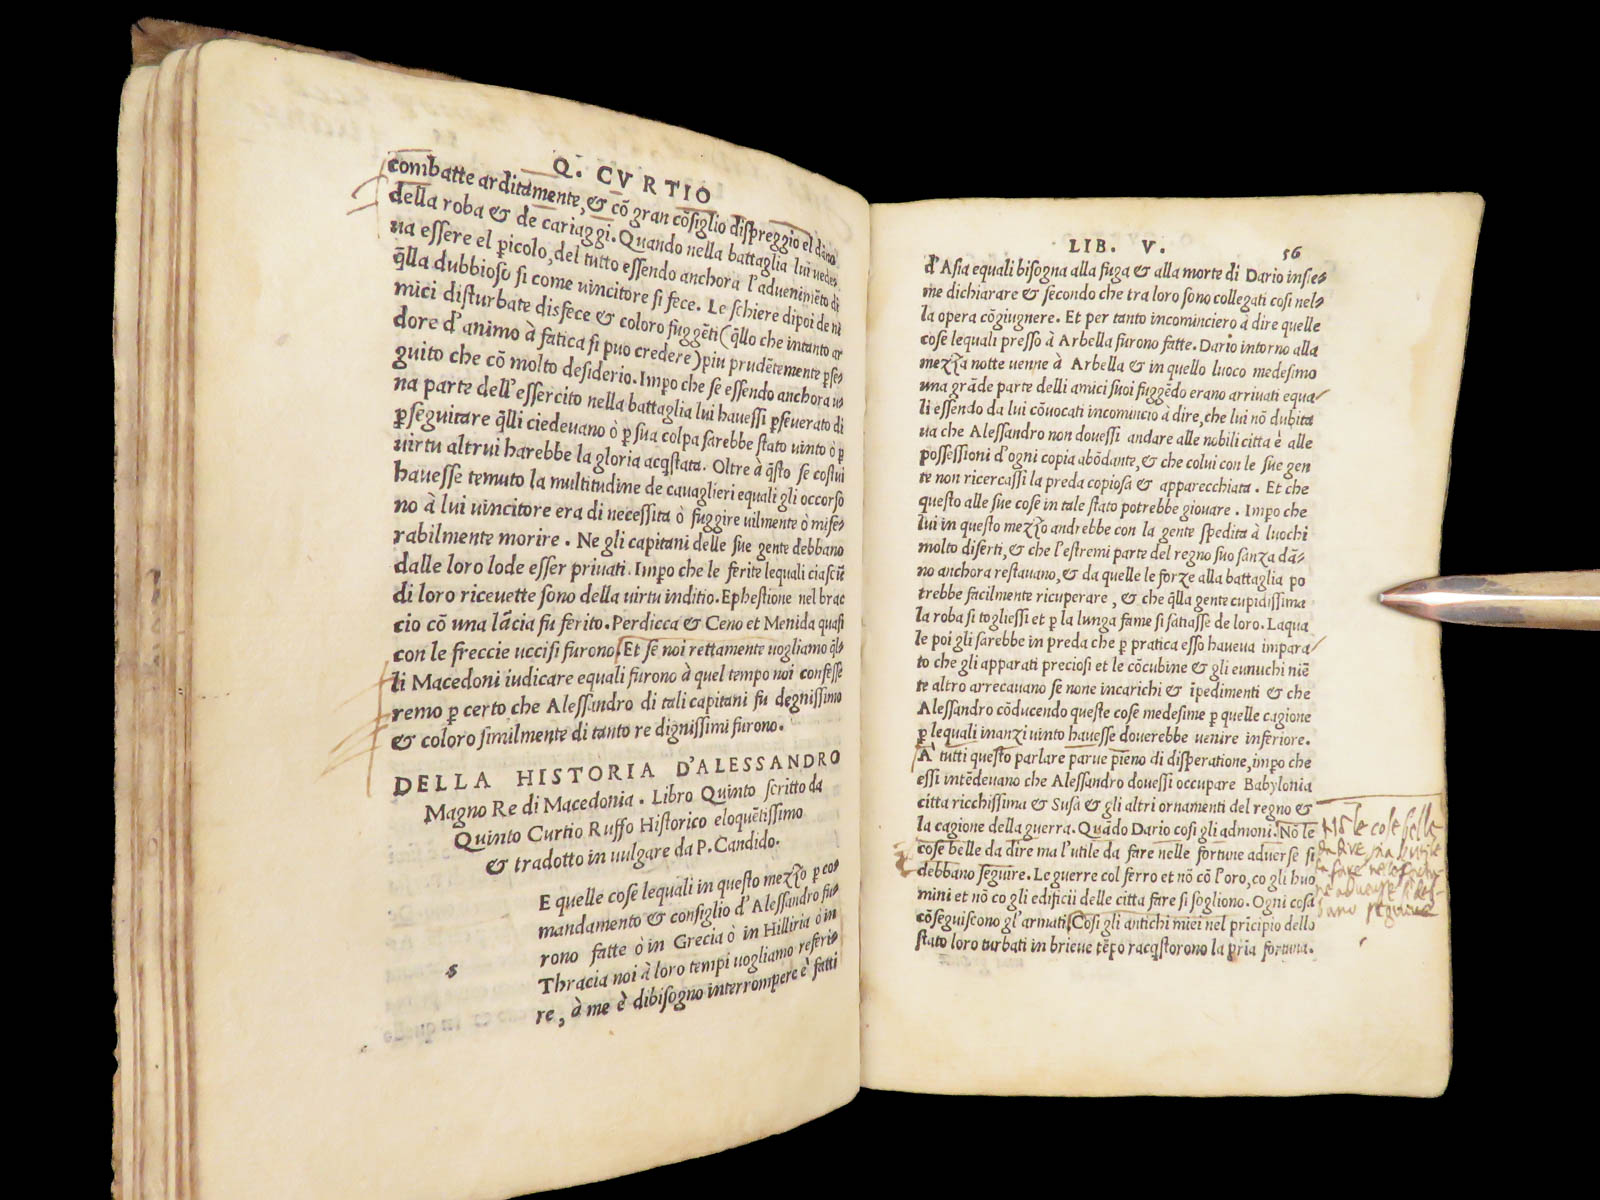 Q. CVRTIO
combatte arditamente, & cõ gran cõsiglio dispreggio el dãno
della roba & de cariaggi. Quando nella battaglia lui uede-
ua essere el ꝑicolo, del tutto essendo anchora l'aduenimẽto di
q̃lla dubbioso si come uincitore si fece. Le schiere dipoi de ni
mici disturbate disfece & coloro fuggẽti (q̃llo che intanto ar
dore d'animo à fatica si puo credere) piu prudẽtemente ꝑse-
guito che cõ molto desiderio. Impo che se essendo anchora u-
na parte dell'essercito nella battaglia lui hauessi ꝑseuerato di
ꝑseguitare q̃lli ciedeuano ò ꝑ sua colpa sarebbe stato uinto ò ꝑ
uirtu altrui harebbe la gloria acq̃stata. Oltre à q̃sto se costui
hauesse temuto la multitudine de cauaglieri equali gli occorso
no à lui uincitore era di necessita ò fuggire uilmente ò mise-
rabilmente morire. Ne gli capitani delle sue gente debbano
dalle loro lode esser priuati. Impo che le ferite lequali ciascũ
di loro riceuette sono della uirtu inditio. Ephestione nel brac
cio cõ una lãcia fu ferito. Perdicca & Ceno et Menida quasi
con le freccie uccisi furono. Et se noi rettamente uogliamo q̃l-
li Macedoni iudicare equali furono à quel tempo noi confesse
remo ꝑ certo che Alessandro di tali capitani fu degnissimo
& coloro similmente di tanto re dignissimi furono.
DELLA HISTORIA D'ALESSANDRO
Magno Re di Macedonia. Libro Quinto scritto da
Quinto Curtio Ruffo Historico eloquẽtissimo
& tradotto in uulgare da P. Candido.
E quelle cose lequali in questo mezzo ꝑ co-
mandamento & consiglio d'Alessandro fu-
rono fatte ò in Grecia ò in Hilliria ò in
s Thracia noi à loro tempi uogliamo referi-
re, à me è dibisogno interrompere è fatti
LIB. V. 56
d'Asia equali bisogna alla fuga & alla morte di Dario insie-
me dichiarare & secondo che tra loro sono collegati cosi nel-
la opera cõgiugnere. Et per tanto incominciero à dire quelle
cose lequali presso à Arbella furono fatte. Dario intorno alla
mezza notte uenne à Arbella & in quello luoco medesimo
una grãde parte delli amici suoi fuggẽdo erano arriuati equa-
li essendo da lui cõuocati incomincio à dire, che lui nõ dubita
ua che Alessandro non douessi andare alle nobili citta è alle
possessioni d'ogni copia abõdante, & che colui con le sue gen
te non ricercassi la preda copiosa & apparecchiata. Et che
questo alle sue cose in tale stato potrebbe giouare. Impo che
lui in questo mezzo andrebbe con la gente spedita à luochi
molto diserti, & che l'estremi parte del regno suo sanza dã-
no anchora restauano, & da quelle le forze alla battaglia po
trebbe facilmente ricuperare, & che q̃lla gente cupidissima
la roba si togliessi et ꝑ la lunga fame si satiasse de loro. Laqua
le poi gli sarebbe in preda che ꝑ pratica esso haueua impara-
to che gli apparati preciosi et le cõcubine & gli eunuchi niẽ
te altro arrecauano se none incarichi & ĩpedimenti & che
Alessandro cõducendo queste cose medesime ꝑ quelle cagione
ꝑ lequali inanzi uinto hauesse douerebbe uenire inferiore.
A tutti questo parlare parue pieno di disperatione, impo che
essi intẽdeuano che Alessandro douessi occupare Babylonia
citta ricchissima & Susa & gli altri ornamenti del regno &
la cagione della guerra. Quãdo Dario cosi gli admoni. Nõ le
cose belle da dire ma l'utile da fare nelle fortune aduerse si
debbano seguire. Le guerre col ferro et nõ cõ l'oro, co gli huo
mini et nõ co gli edificii delle citta fare si sogliono. Ogni cosa
cõseguiscono gl'armati. Cosi gli antichi miei nel prĩcipio dello
stato loro turbati in brieue tẽpo racq̃storono la pria fortuna.
Nõ le cose belle
da dire ma l'utile
da fare nelle fortu-
ne aduerse si deb-
bano seguire